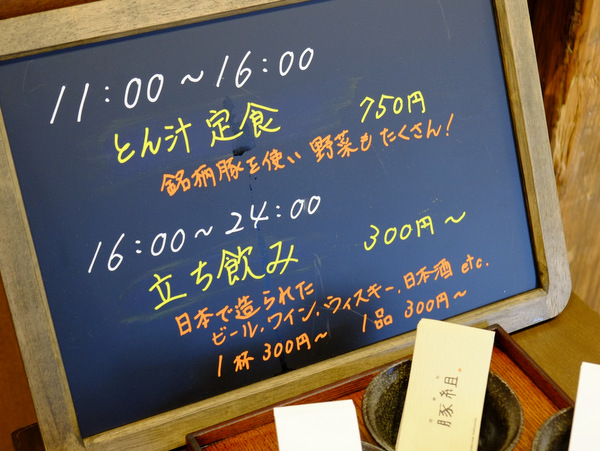 11:00～16:00
とん汁 定食 750円
銘柄豚を使い 野菜もたくさん!
16:00～24:00
立ち飲み 300円～
日本で造られた
ビール.ワイン.ウィスキー.日本酒 etc.
1杯 300円～ 1品 300円～
豚組